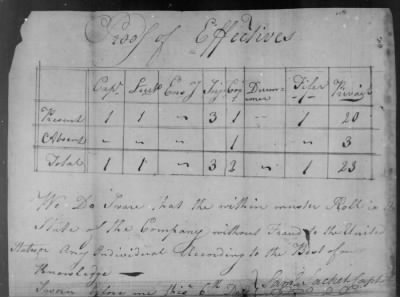 Proof of Effectives
Capt. Lieut. Ens. Serj. Corp. Drummer Fifer Privats
Present 1 1 ~ 3 1 ~ 1 20
Absent ~ ~ ~ ~ 1 ~ ~ 3
Total 1 1 ~ 3 2 ~ 1 23
We Do Sware that the within muster Roll is the
State of the Company without Fraud to the United
States or Any Individual According to the Best of
Knowledge
Sworn before me this 6th Day Saml Sacket Capt